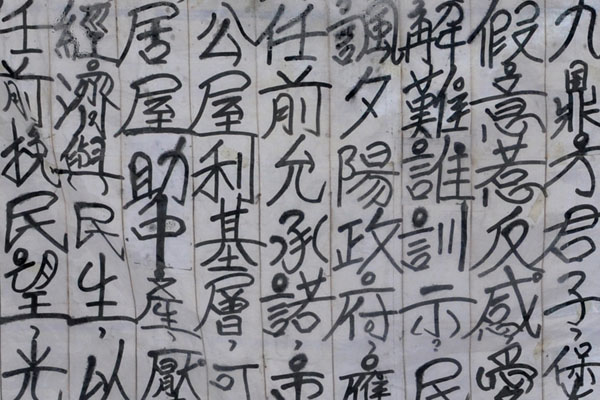 九鼎方君子，保
假意惹反感，
解難誰訓示？民
諷夕陽政府，應
任前允承諾，
公屋利基層，可
居屋助中產，壓
經濟與民生，以
任前挽民望，光